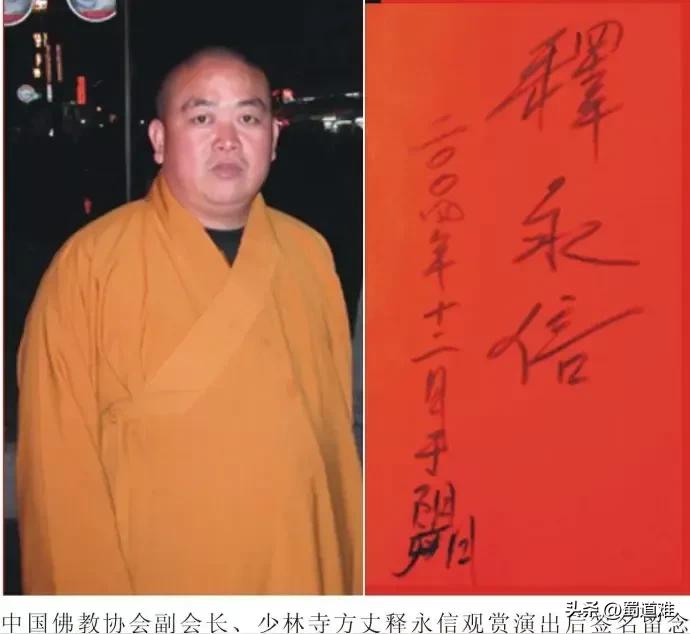 釋永信
二〇〇四年十二月于
头条@蜀道难
中国佛教协会副会长、少林寺方丈释永信观赏演出后签名留念